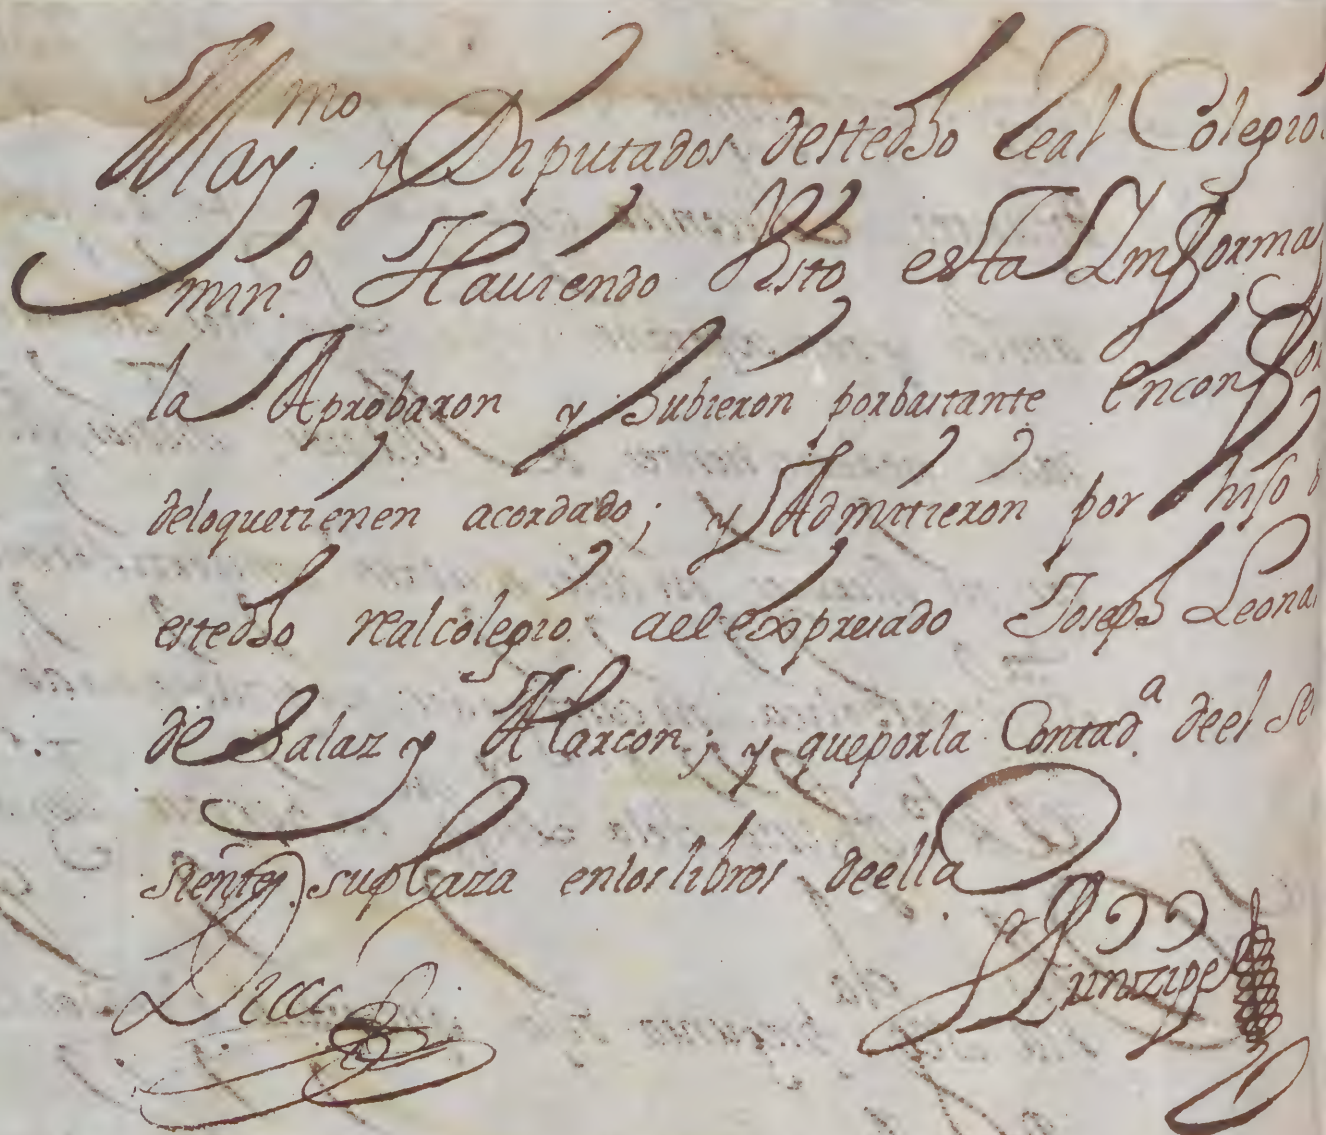 May.mo y Diputados destedho Real Colegio
semin.o Haviendo Visto esta Ymforma
la Aprobaron y hubieron porbastante enconfor
deloquetienen acordado; y Admitieron por hijo d
estedho realcolegio ael expresado Joseph Leona
de Salaz y Alarcon; y queporla Contad.a deel se
siente suplaza enlos libros deella